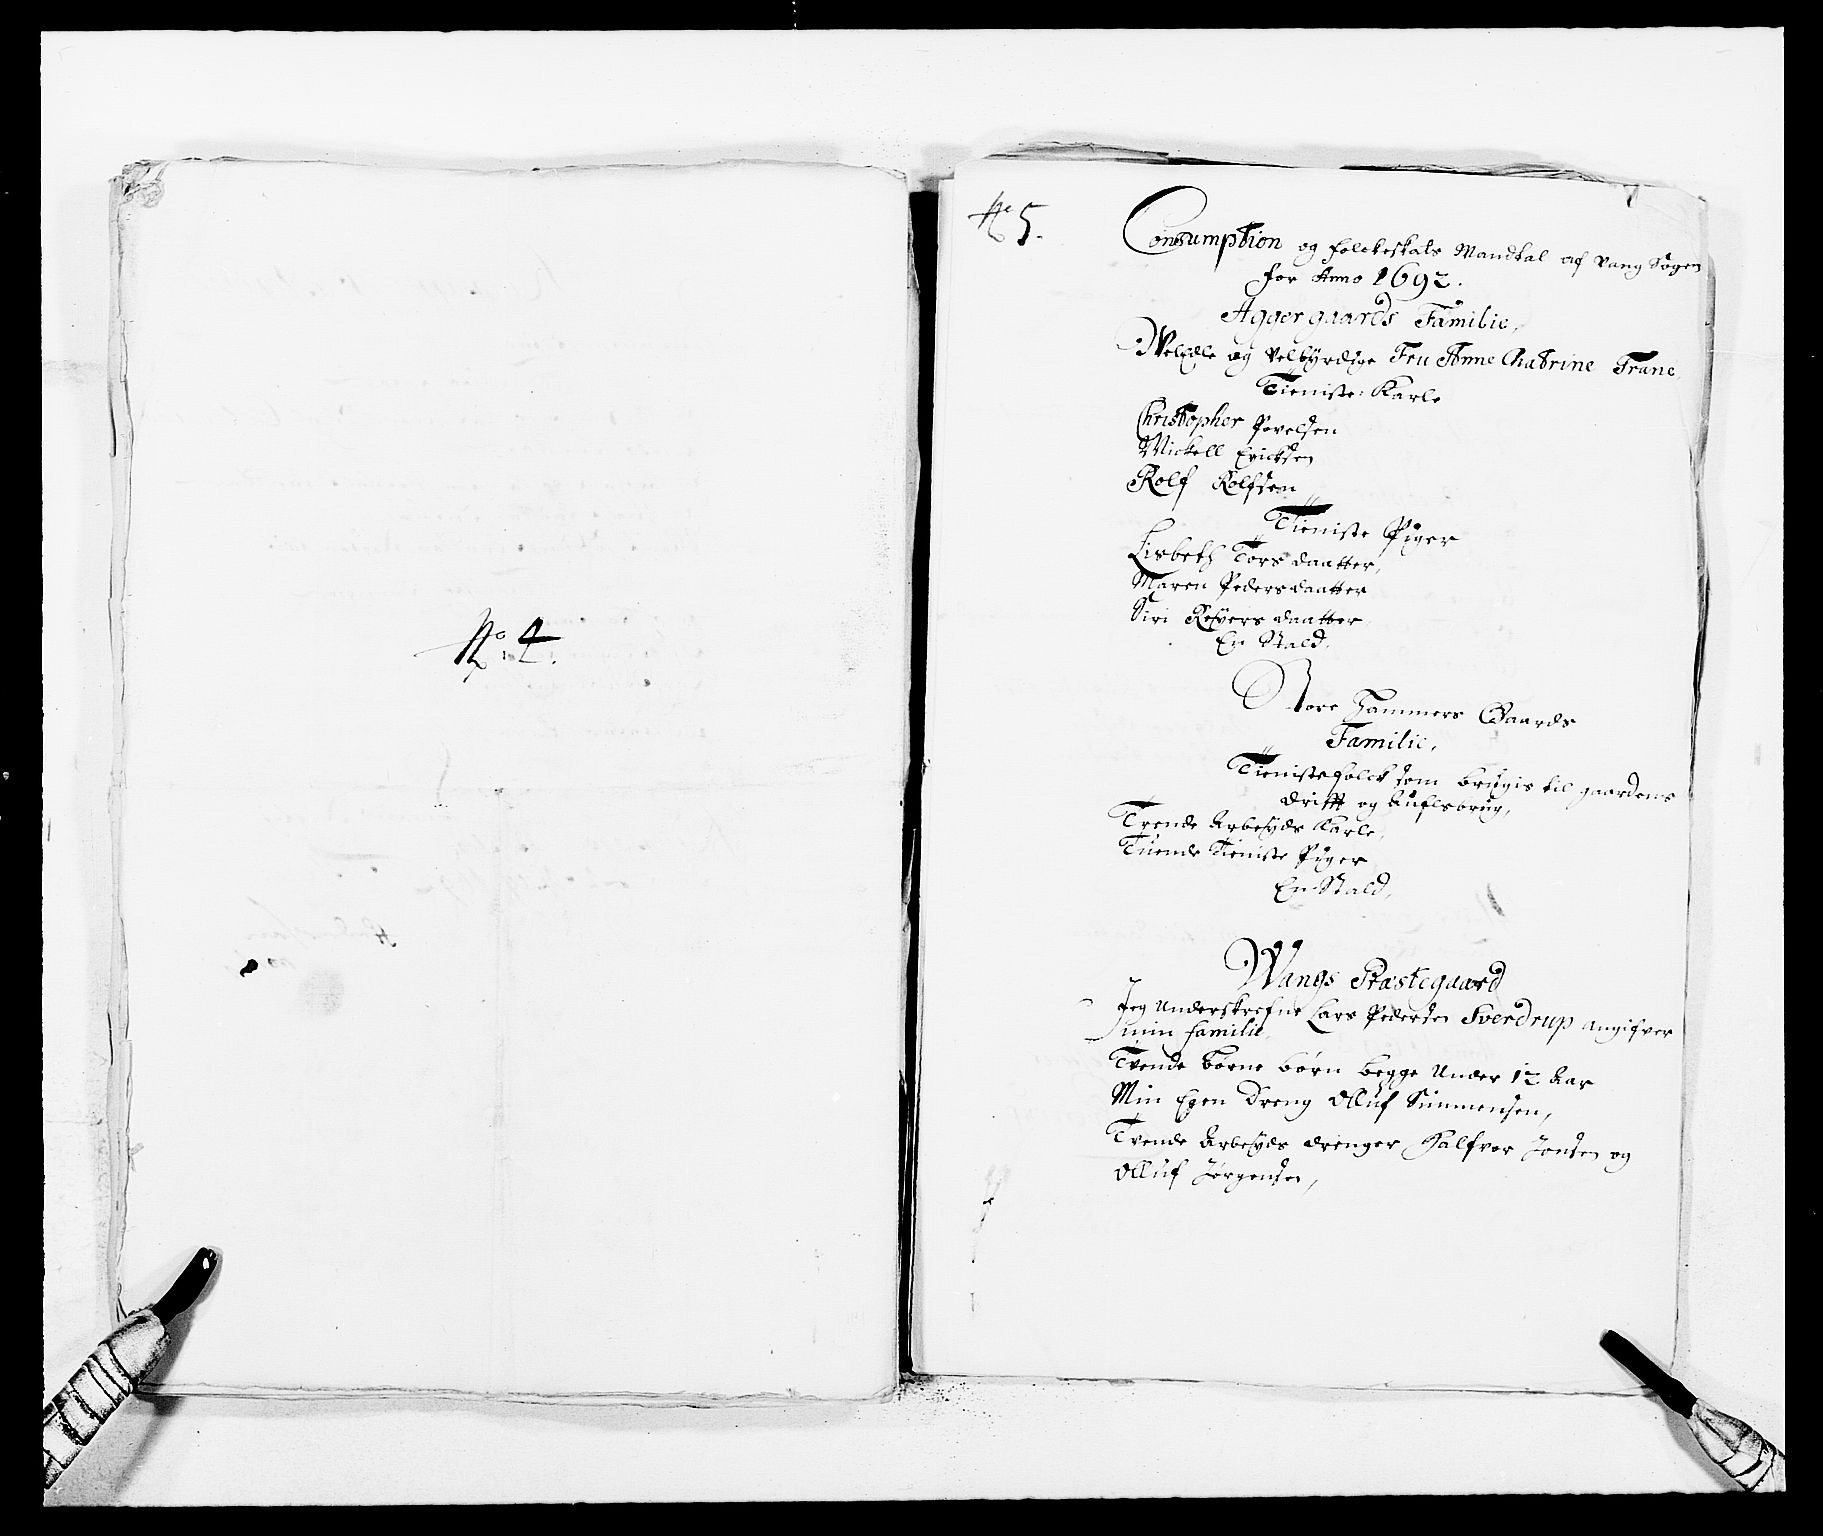 No. 4.
No 5.
Consumption og folckeskats Mandtal af Vang Sogen
for Anno 1692.
Aggergaards Familie,
Welædle og Velbyrdige Fru Anne Chatrine Trane,
Tieniste Karle
Christopher Povelsen
Mickell Ericksen
Rolf Rolfsen
Tieniste Piger
Lisbeth Tors daatter,
Maren Peders daatter
Siri Reyers daatter
En Stald.
Store Hammers Gaards
Familie,
Tienistefolck som brugis til gaardens
drifft og Aufls brug,
Trende Arbeyds Karle,
Tuende tieniste Piger
En Stald,
Wangs Præstegaard
Jeg Underskrefne Lars Pedersen Sverdrup angifver
min familie.
Tvende børne børn begge Under 12 Aar
Min Egen Dreng Olluf Simmensen,
Tvende Arbeyds drenger Halfvor Jonsen og
Olluf Jørgensen,